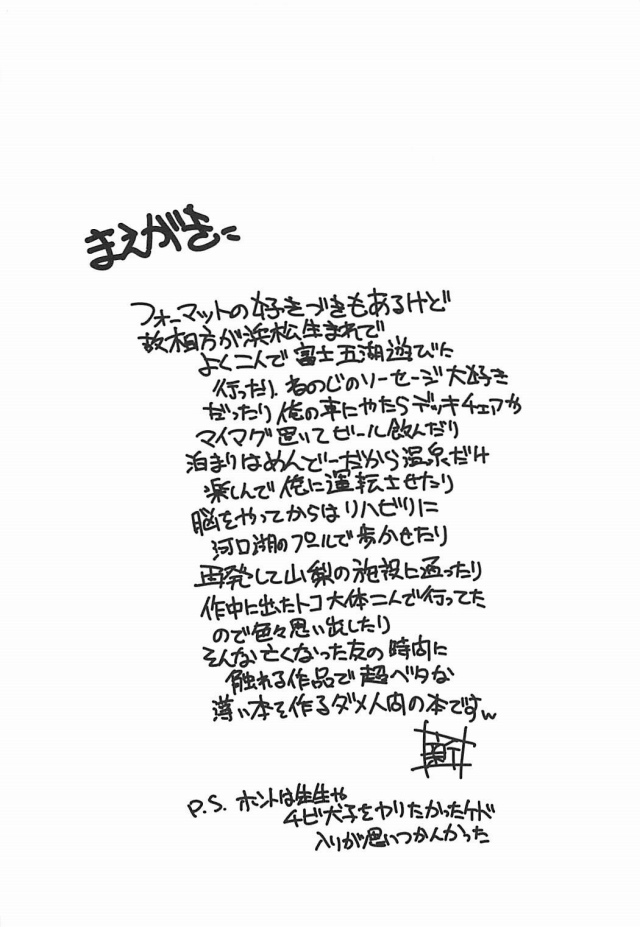 まえがきに
フォーマットの好きづきもあるけど
故相方が浜松生まれで
よく二人で富士五湖遊びに
行ったり、ねのじのソーセージ大好き
だったり俺の車にやたらデッキチェアか
マイマグ置いてビール飲んだり
泊まりはめんどーだから温泉だけ
楽しんで俺に運転させたり
脳をやってからはリハビリに
河口湖のプールで歩かせたり
再発して山梨の施設に通ったり
作中に出たトコ大体二人で行ってた
ので色々思い出したり
そんな亡くなった友の時間に
触れる作品で超ベタな
薄い本を作るダメ人間の本ですw
P.S. ホントは生生や
チビ犬子をヤリたかったけド
入りが思いつかんかった